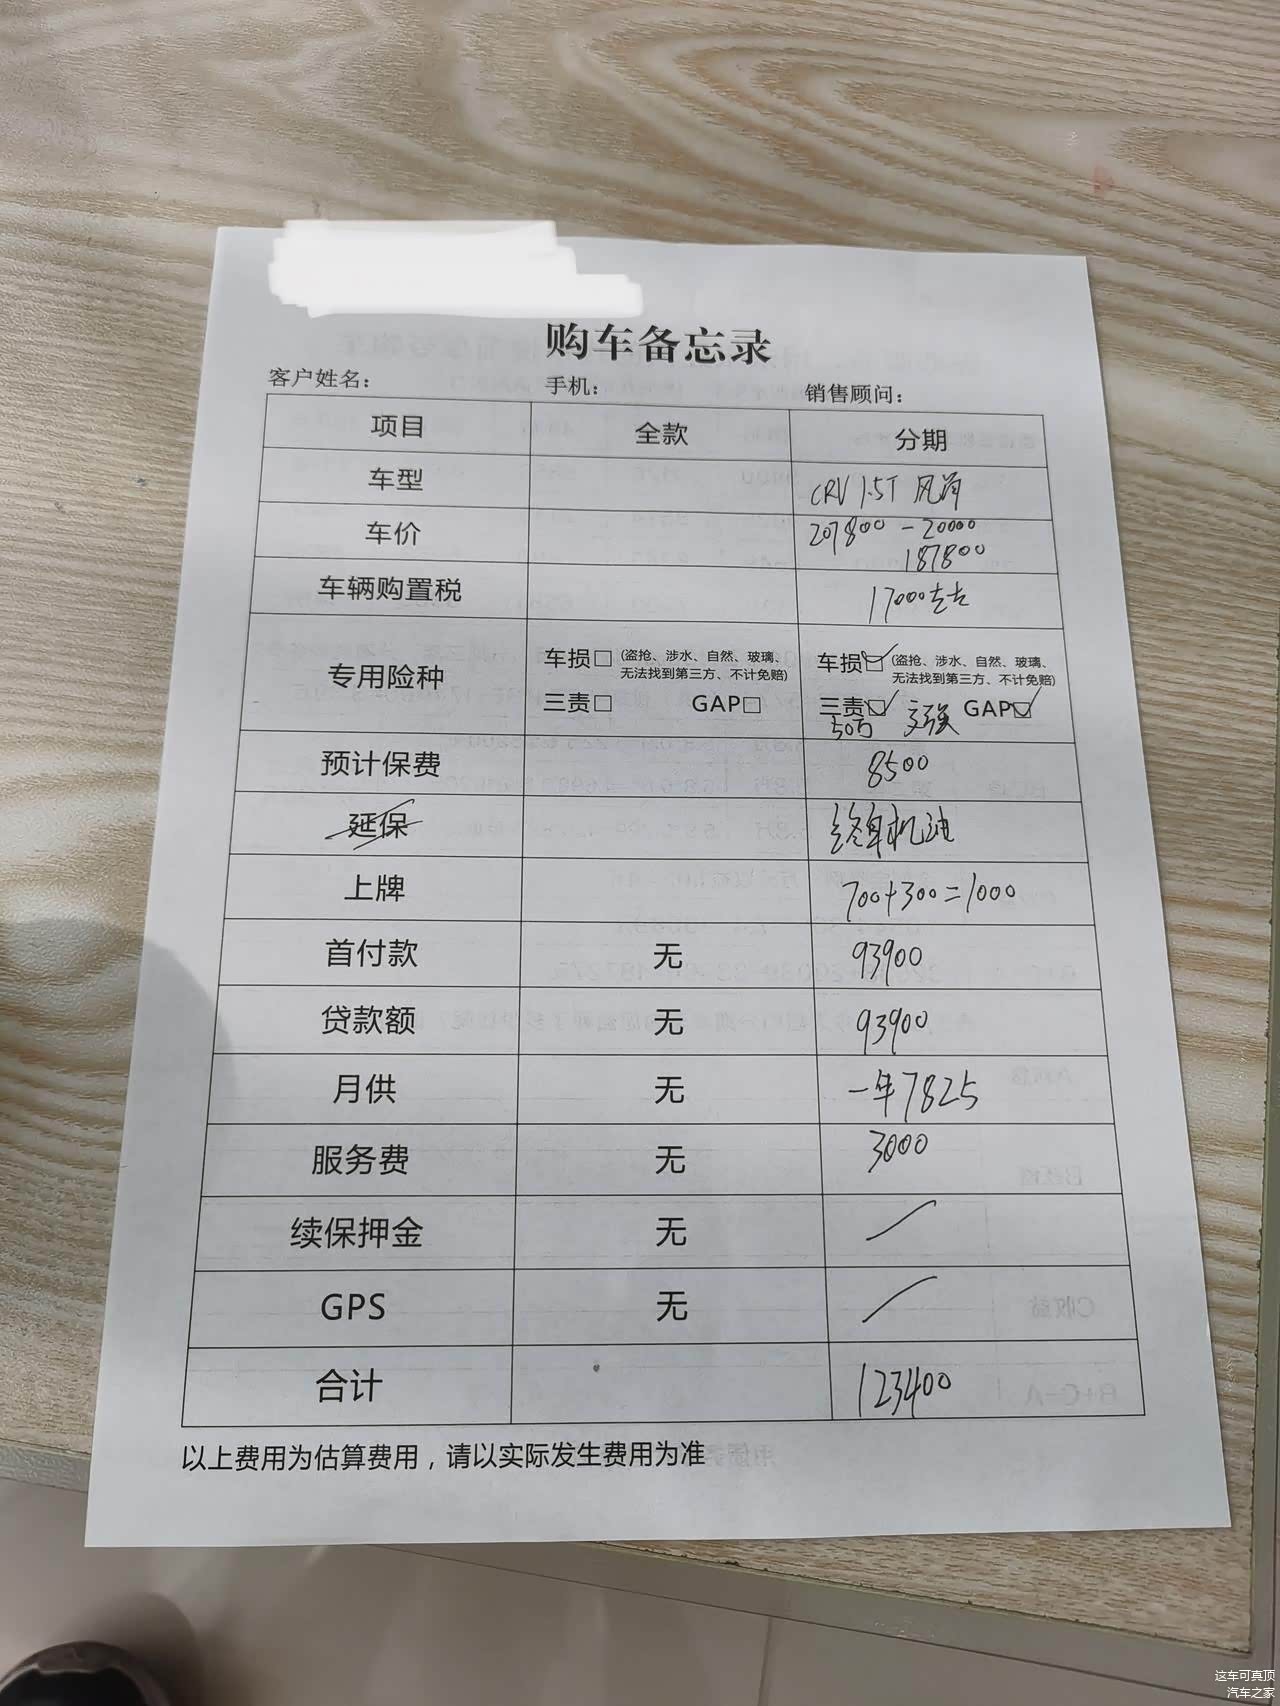 购车备忘录
客户姓名： 手机： 销售顾问：
项目 全款 分期
车型 CRV 1.5T 风尚
车价 207800 - 20000
187800
车辆购置税 17000左右
专用险种 车损□ (盗抢、涉水、自然、玻璃、无法找到第三方、不计免赔) 车损☑ (盗抢、涉水、自然、玻璃、无法找到第三方、不计免赔)
三责□ GAP□ 三责☑ GAP☑
50万 交强
预计保费 8500
延保 终身机油
上牌 700+300=1000
首付款 无 93900
贷款额 无 93900
月供 无 一年7825
服务费 无 3000
续保押金 无 /
GPS 无 /
合计 123400
以上费用为估算费用，请以实际发生费用为准
这车可真顶
汽车之家